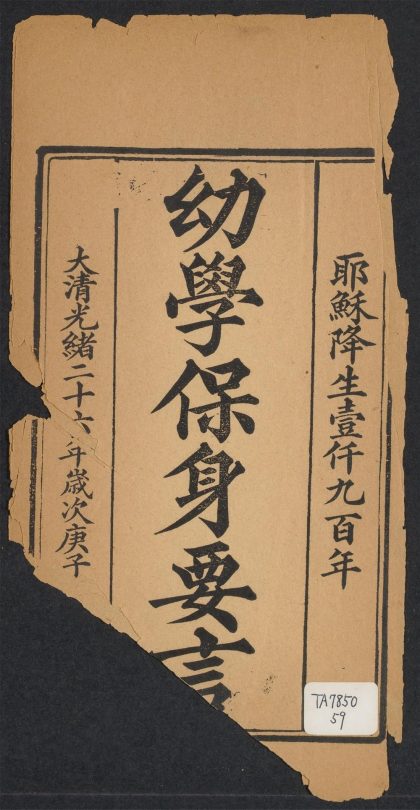 耶穌降生壹仟九百年
幼學保身要言
大清光緒二十六年歲次庚子
TA7850
59